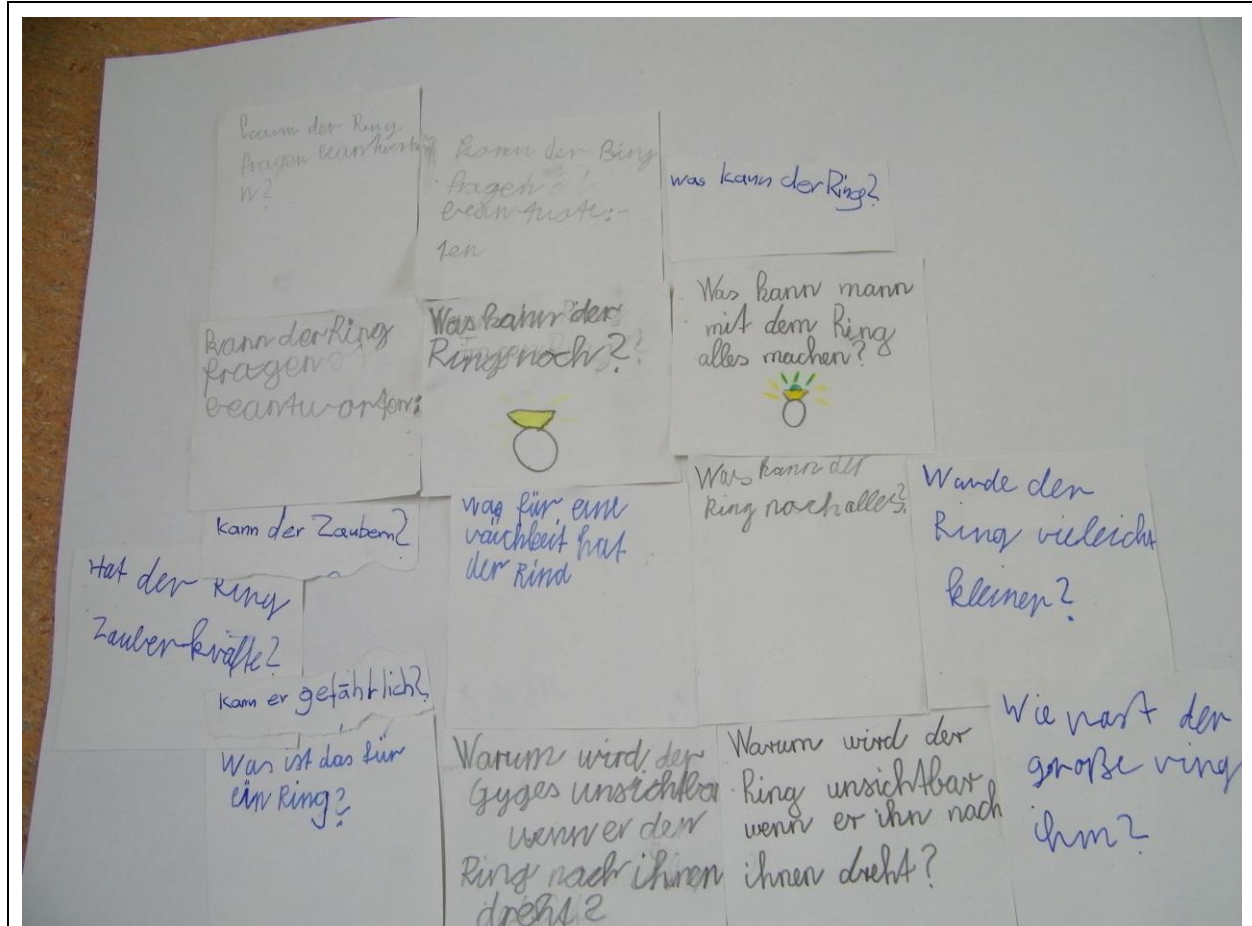 kann der Ring
fragen beantworte
n?
kann der Ring
fragen
beantwate:-
ten
was kann der Ring?
kann der Ring
fragen
beantwarten:
Was kann der
Ring noch?
Was kann mann
mit dem Ring
alles machen?
kann der Zaubern?
was für eine
hat
der Rind
Was kann der
Ring noch alles?
Wurde der
Ring vieleicht
kleiner?
Hat der Ring
Zauberkräfte?
kann er gefährlich?
Was ist das für
ein Ring?
Warum wird der
Gyges unsichtba
wenn er den
Ring nach ihnen
dreht?
Warum wird der
Ring unsichtbar
wenn er ihn nach
ihnen dreht?
Wie past der
große ring
ihm?